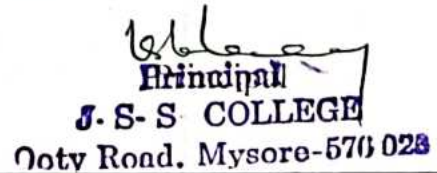 Principal
J. S- S COLLEGE
Ooty Road, Mysore-570 023